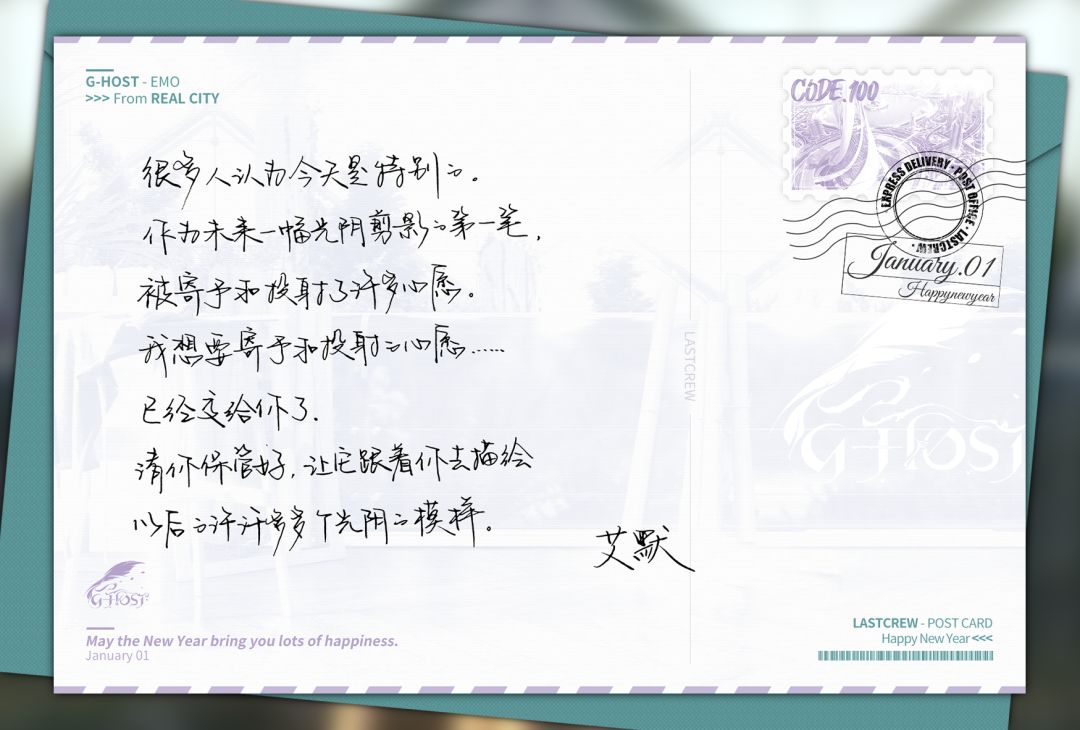 G-HOST - EMO
>>> From REAL CITY
CODE 100
EXPRESS DELIVERY · POST OFFICE · LASTCREW ·
January.01
Happynewyear
很多人认为今天是特别的。
作为未来一幅光阴剪影的第一笔,
被寄予和投射了许多心愿。
我想要寄予和投射的心愿……
已经交给你了.
请你保管好,让它跟着你去描绘
以后的许许多多个光阴的模样。
艾默
LASTCREW
G-HOST
G-HOST
May the New Year bring you lots of happiness.
January 01
LASTCREW - POST CARD
Happy New Year <<<